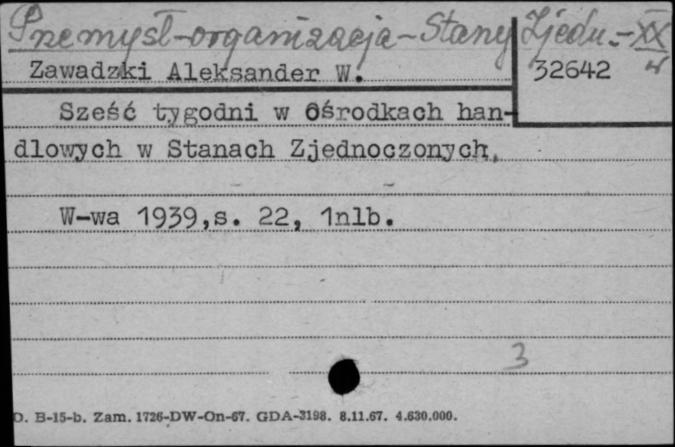 Przemysł-organizacja-Stany Zjedn.-XX
w
Zawadzki Aleksander W.
32642
Sześć tygodni w Ośrodkach han-
dlowych w Stanach Zjednoczonych.
W-wa 1939,s. 22, 1nlb.
3
D. B-15-b. Zam. 1726-DW-On-67. GDA-3198. 8.11.67. 4.630.000.